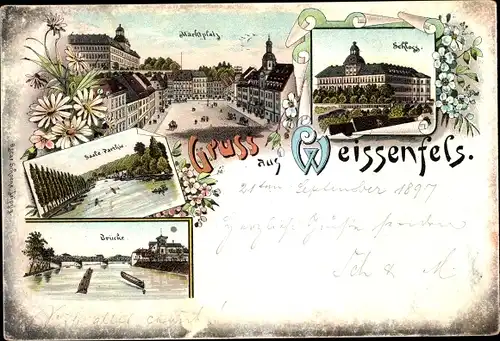 Marktplatz
Schloss.
Saale Parthie
Gruss aus Weissenfels.
Brücke
21ten September 1897
Herzliche Grüße senden